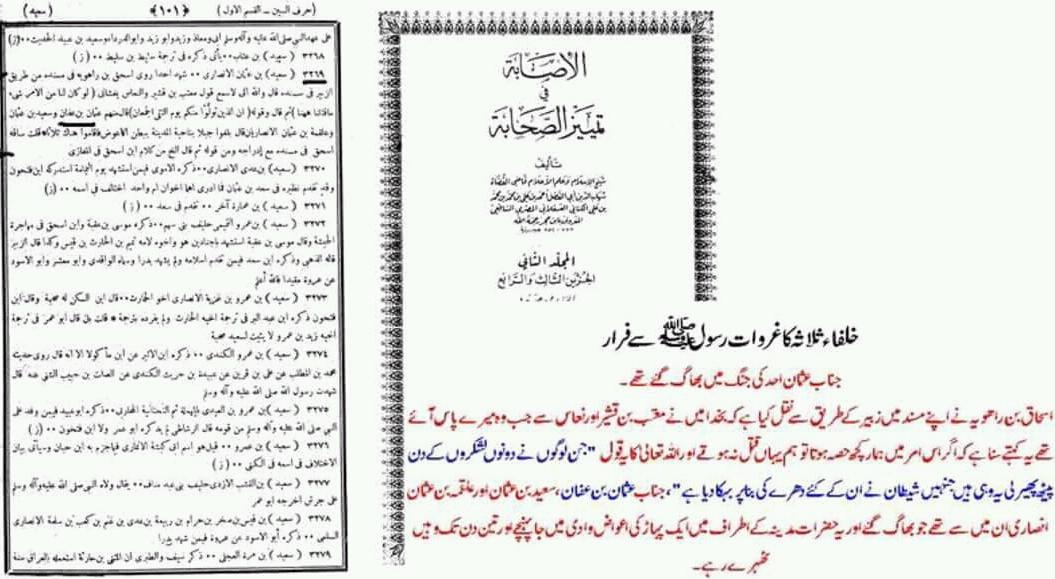 (حرف السين - القسم الاول) ﴿١٠١﴾ (سعيد)
على عهد النبي صلى الله عليه وآله وسلم ابي ومعاذ وزيد وابو زيد وابو الدرداء وسعيد بن عبيد الحديث ٠٠ (ز)
٣٢٦٨ (سعيد) بن عتاب ٠٠ يأتى ذكره فى ترجمة سليط بن سليط ٠٠ (ز)
٣٢٦٩ (سعيد) بن عثمان الانصارى ٠٠ شهد احدا روى اسحق بن راهويه فى مسنده من طريق
الزبير فى مسنده قال والله انى لاسمع قول معتب بن قشير والنعاس يغشانى (لو كان لنا من الامر شىء
ماقتلنا ههنا) ثم قال وقوله (ان الذين تولوا منكم يوم التقى الجمعان) قال منهم عثمان بن عفان وسعيد بن عثمان
وعلقمة بن عثمان الانصاريان قال بلغوا جبلا بناحية المدينة ببطن الاعوض فاقاموا هناك ثلاثة قلت ساقه
اسحق فى مسنده مع إدراجه ومن قوله ثم قال الخ من كلام ابن اسحق فى المغازى
٣٢٧٠ (سعيد) بن عدى الانصارى ٠٠ ذكره الاموى فيمن استشهد يوم اليمامة استدركه ابن فتحون
وقد تقدم نظيره فى سعد بن عثمان فما ادرى اهما اخوان ام واحد اختلف فى اسمه ٠٠ (ز)
٣٢٧١ (سعيد) بن عمارة آخر ٠٠ تقدم فى سعد ٠٠ (ز)
٣٢٧٢ (سعيد) بن عمرو التميمى حليف بنى سهم ٠٠ ذكره موسى بن عقبة وابن اسحق فى مهاجرة
الحبشة وقال موسى بن عقبة استشهد باجنادين هو واخوه لامه تميم بن الحارث بن قيس وكذا قال الزبير
قاله الذهبى وذكره ابن سعد فيمن تقدم اسلامه ولم يشهد بدرا وسماه الواقدى وابو معشر وابو الاسود
عن عروة معبدا فالله أعلم
٣٢٧٣ (سعيد) بن عمرو بن غزية الانصارى اخو الحارث ٠٠ قال ابن السكن له صحبة وقال ابن
فتحون ذكره ابن عبد البر فى ترجمة اخيه الحارث ولم يفرده بترجمة * قلت بل قال أبو عمر فى ترجمة
اخيه زيد بن عمرو لا يثبت لسعيد صحبة
٣٢٧٤ (سعيد) بن عمرو الكندى ٠٠ ذكره ابن الاثير عن ابن ماكولا الا انه قال روى حديثه
محمد بن المطلب عن على بن قرين عن عبيدة بن حريث الكندى عن الصلت بن حبيب الشنى عنه قال
شهدت رسول الله صلى الله عليه وآله وسلم
٣٢٧٥ (سعيد) بن عمرو بن العبدى ٠٠ ذكره ابو عبيد فيمن وفد على
النبى صلى الله عليه وآله وسلم من قومه قال الرشاطى لم يذكره ابو عمر ولا ابن فتحون ٠٠ (ز)
٣٢٧٦ (سعيد) بن عمرو ٠٠ قيل هو اسم ابى كبشة الانمارى فيما جزم به ابن حبان وسيأتى بيان
الاختلاف فى اسمه فى الكنى ٠٠ (ز)
٣٢٧٧ (سعيد) بن القشب الازدى حليف بنى عبد مناف ٠٠ يقال ولاه النبى صلى الله عليه وآله وسلم
على جرش اخرجه ابو عمر
٣٢٧٨ (سعيد) بن قيس بن صخر بن حرام بن ربيعة بن عدى بن غنم بن كعب بن سلمة الانصارى
السلمى ٠٠ ذكره أبو الاسود عن عروة فيمن شهد بدرا
٣٢٧٩ (سعيد) بن مرة العجلى ٠٠ ذكر سيف والطبرى ان المثنى بن حارثة استعمله بالعراق سنة
الإصابة
في
تمييز الصحابة
تأليف
شيخ الإسلام وعلم الأعلام قاضي القضاة
شهاب الدين أبي الفضل أحمد بن علي بن محمد بن محمد
بن علي الكناني العسقلاني المصري الشافعي
المعروف بابن حجر رحمه الله
المجلد الثاني
الجزئين الثالث والرابع
خلفاء ثلاثہ کا غزوات رسول ﷺ سے فرار
جناب عثمان احد کی جنگ میں بھاگ گئے تھے۔
اسحاق بن راھویہ نے اپنے مسند میں زبیر کے طریق سے نقل کیا ہے کہ بخدا میں نے معتب بن قشیر اور نعاس سے جب وہ میرے پاس آئے
تھے یہ کہتے سنا ہے کہ اگر اس امر میں ہمارا کچھ حصہ ہوتا تو ہم یہاں قتل نہ ہوتے اور اللہ تعالیٰ کا یہ قول "جن لوگوں نے دونوں لشکروں کے دن
پیٹھ پھیر لی یہ وہی ہیں جنہیں شیطان نے ان کے کئے دھرے کی بنا پر بہکا دیا ہے"، جناب عثمان بن عفان، سعید بن عثمان اور علقمہ بن عثمان
انصاری ان میں سے تھے جو بھاگ گئے اور یہ حضرات مدینہ کے اطراف میں ایک پہاڑ کی اعواض وادی میں جا پہنچے اور تین دن تک وہیں
ٹھہرے رہے۔